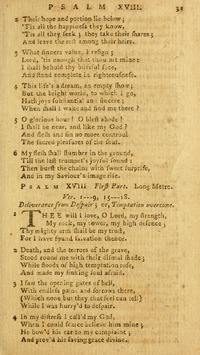 PSALM XVIII. 31
2 Their hope and portion lie below;
'Tis all the happiness they know,
'Tis all they seek; they take their shares;
And leave the rest among their heirs.
3 What sinners value, I resign;
Lord, 'tis enough that thou art mine:
I shall behold thy blissful face,
And stand complete in righteousness.
4 This life's a dream, an empty show;
But the bright world, to which I go,
Hath joys substantial and sincere;
When shall I wake and find me there?
5 O glorious hour! O blest abode!
I shall be near, and like my God?
And flesh and sin no more controul
The sacred pleasures of the soul.
6 My flesh shall slumber in the ground,
Till the last trumpet's joyful sound;
Then burst the chains with sweet surprise,
And in my Saviour's image rise.
PSALM XVIII. First Part. Long Metre.
Ver. 1—9, 15—18.
Deliverance from Despair; or, Temptation overcome.
1 THEE will I love, O Lord, my strength,
My rock, my tower, my high defence;
Thy mighty arm shall be my trust,
For I have found salvation thence.
2 Death, and the terrors of the grave,
Stood round me with their dismal shade;
While floods of high temptation rose,
And made my sinking soul afraid.
3 I saw the opening gates of hell,
With endless pains and sorrows there,
(Which none but they that feel can tell)
While I was hurry'd to despair.
4 In my distress I call'd my God,
When I could scarce believe him mine;
He bow'd his ear to my complaint;
And prov'd his saving grace divine.